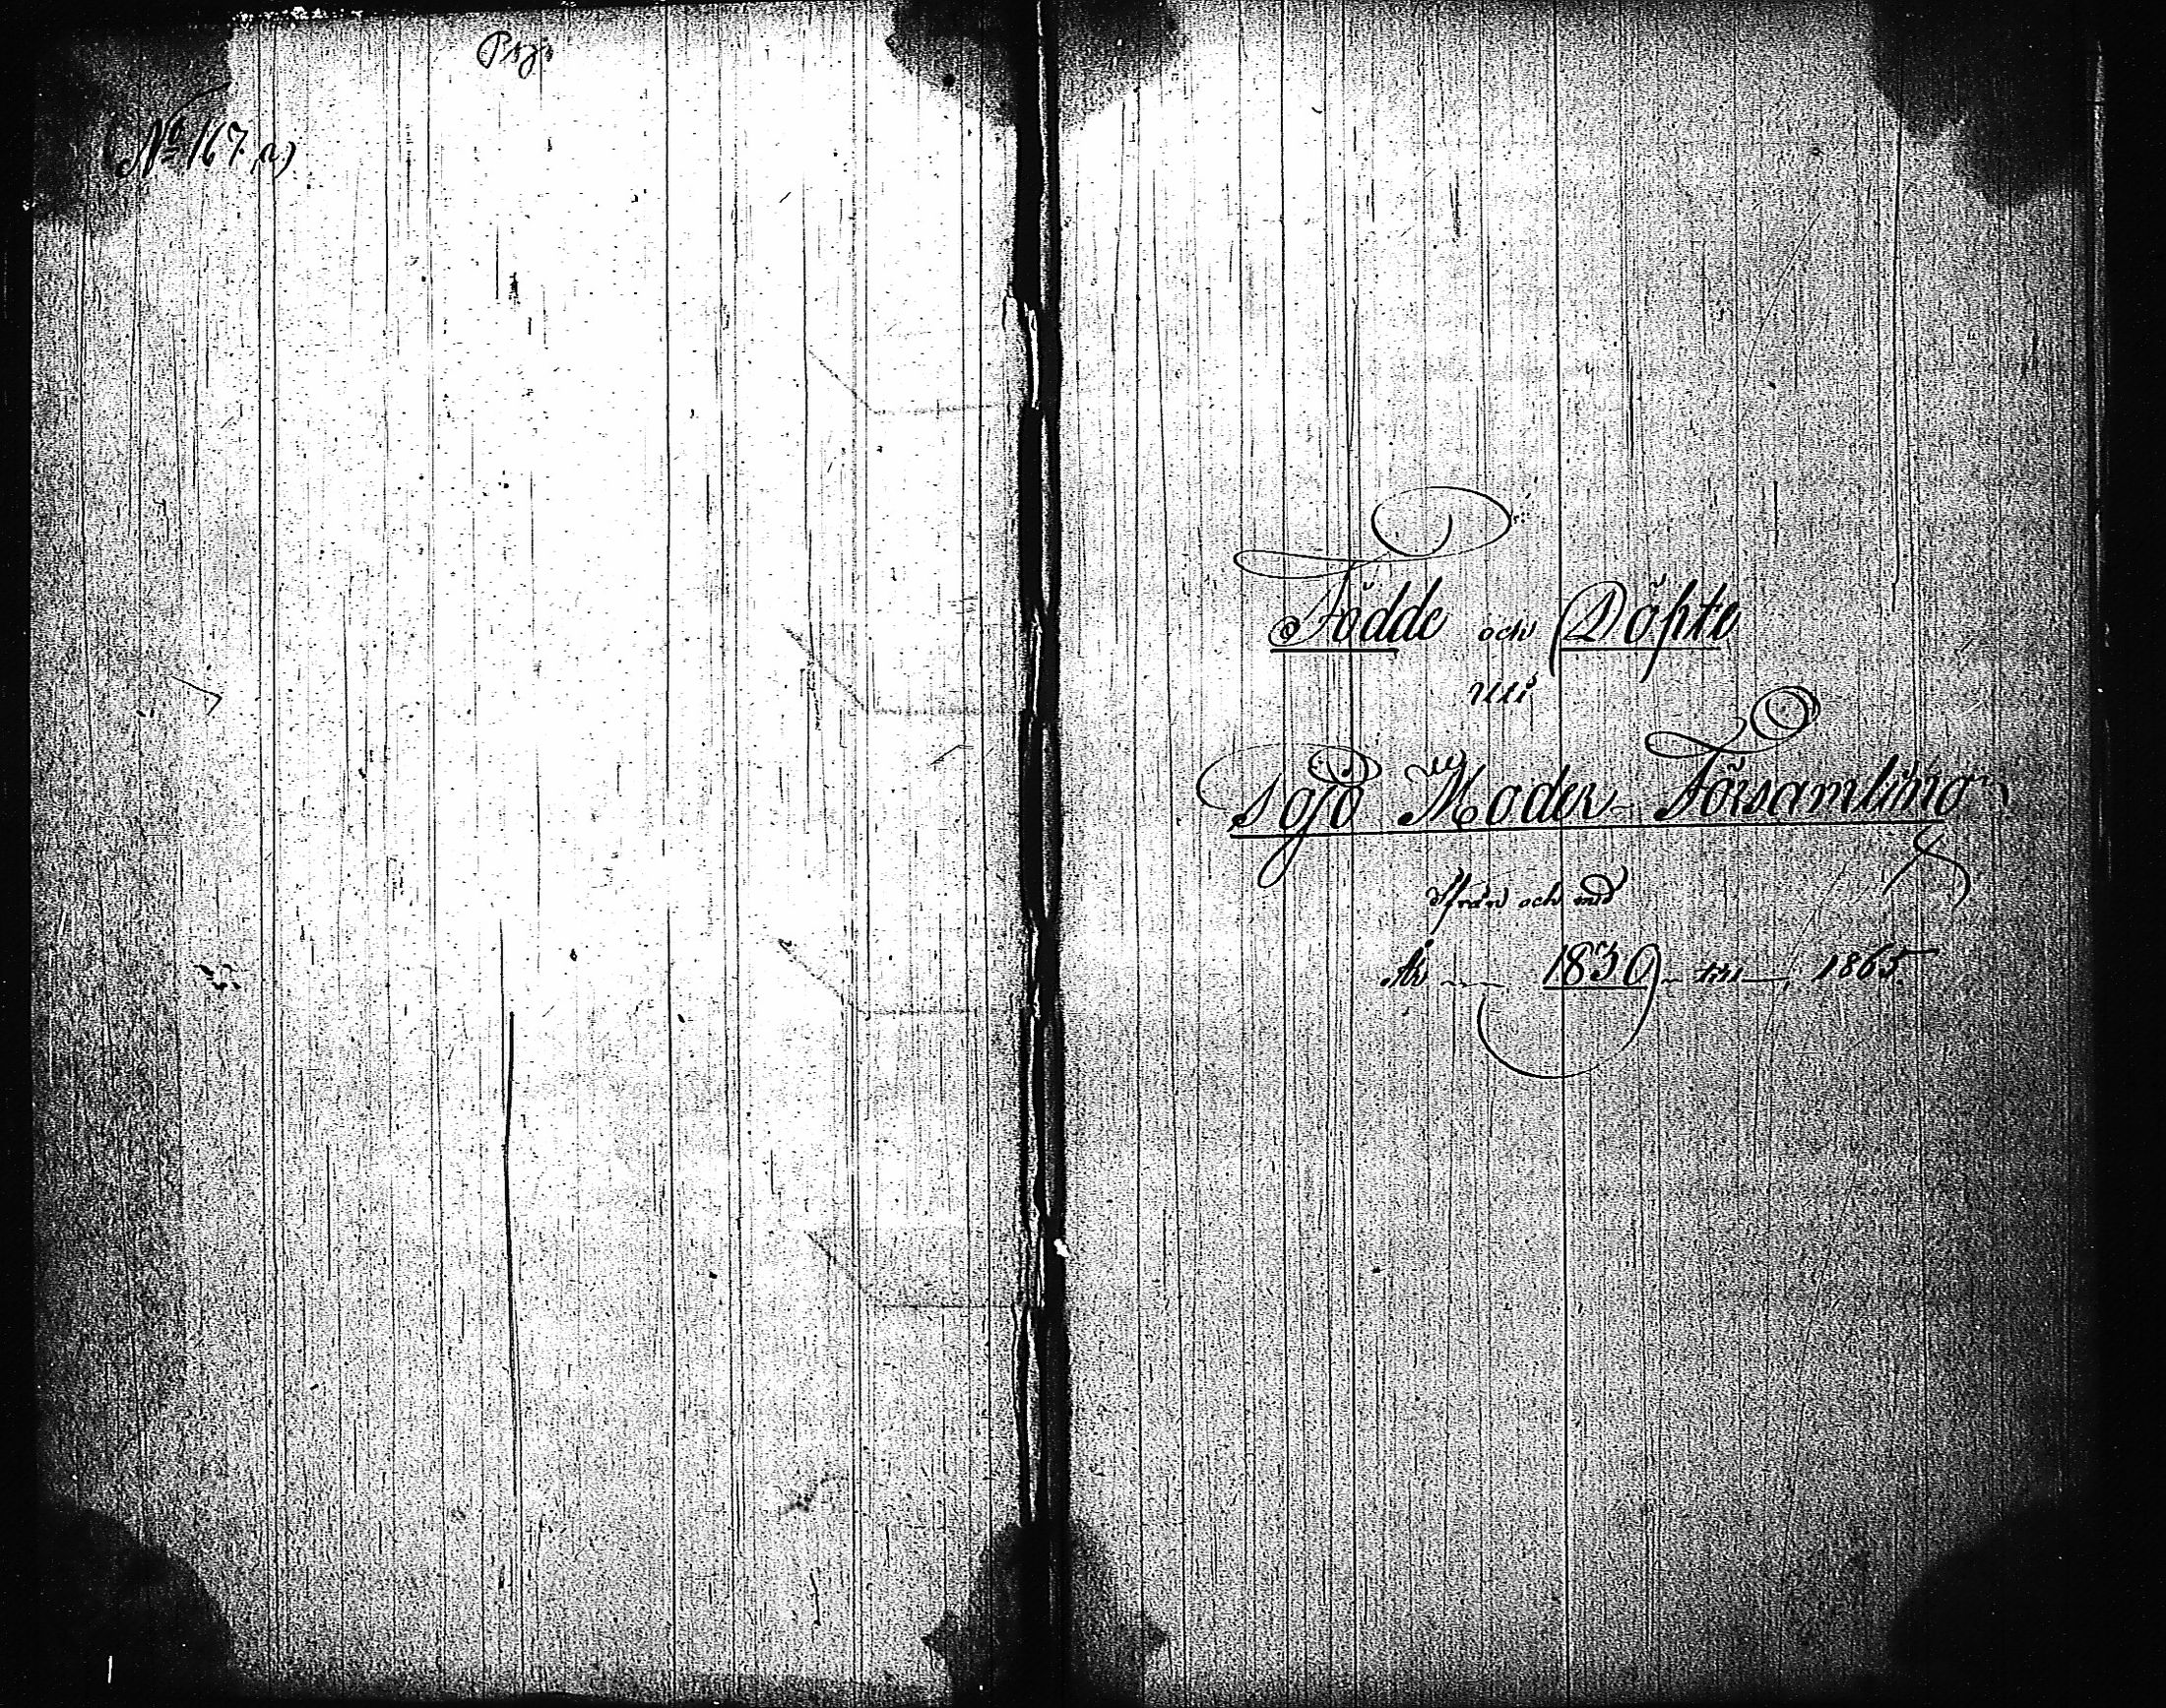 No 167. a)
Födde och Döpte
uti
Sojo Moder Församling
Ifrån och med
År 1839 till 1865.